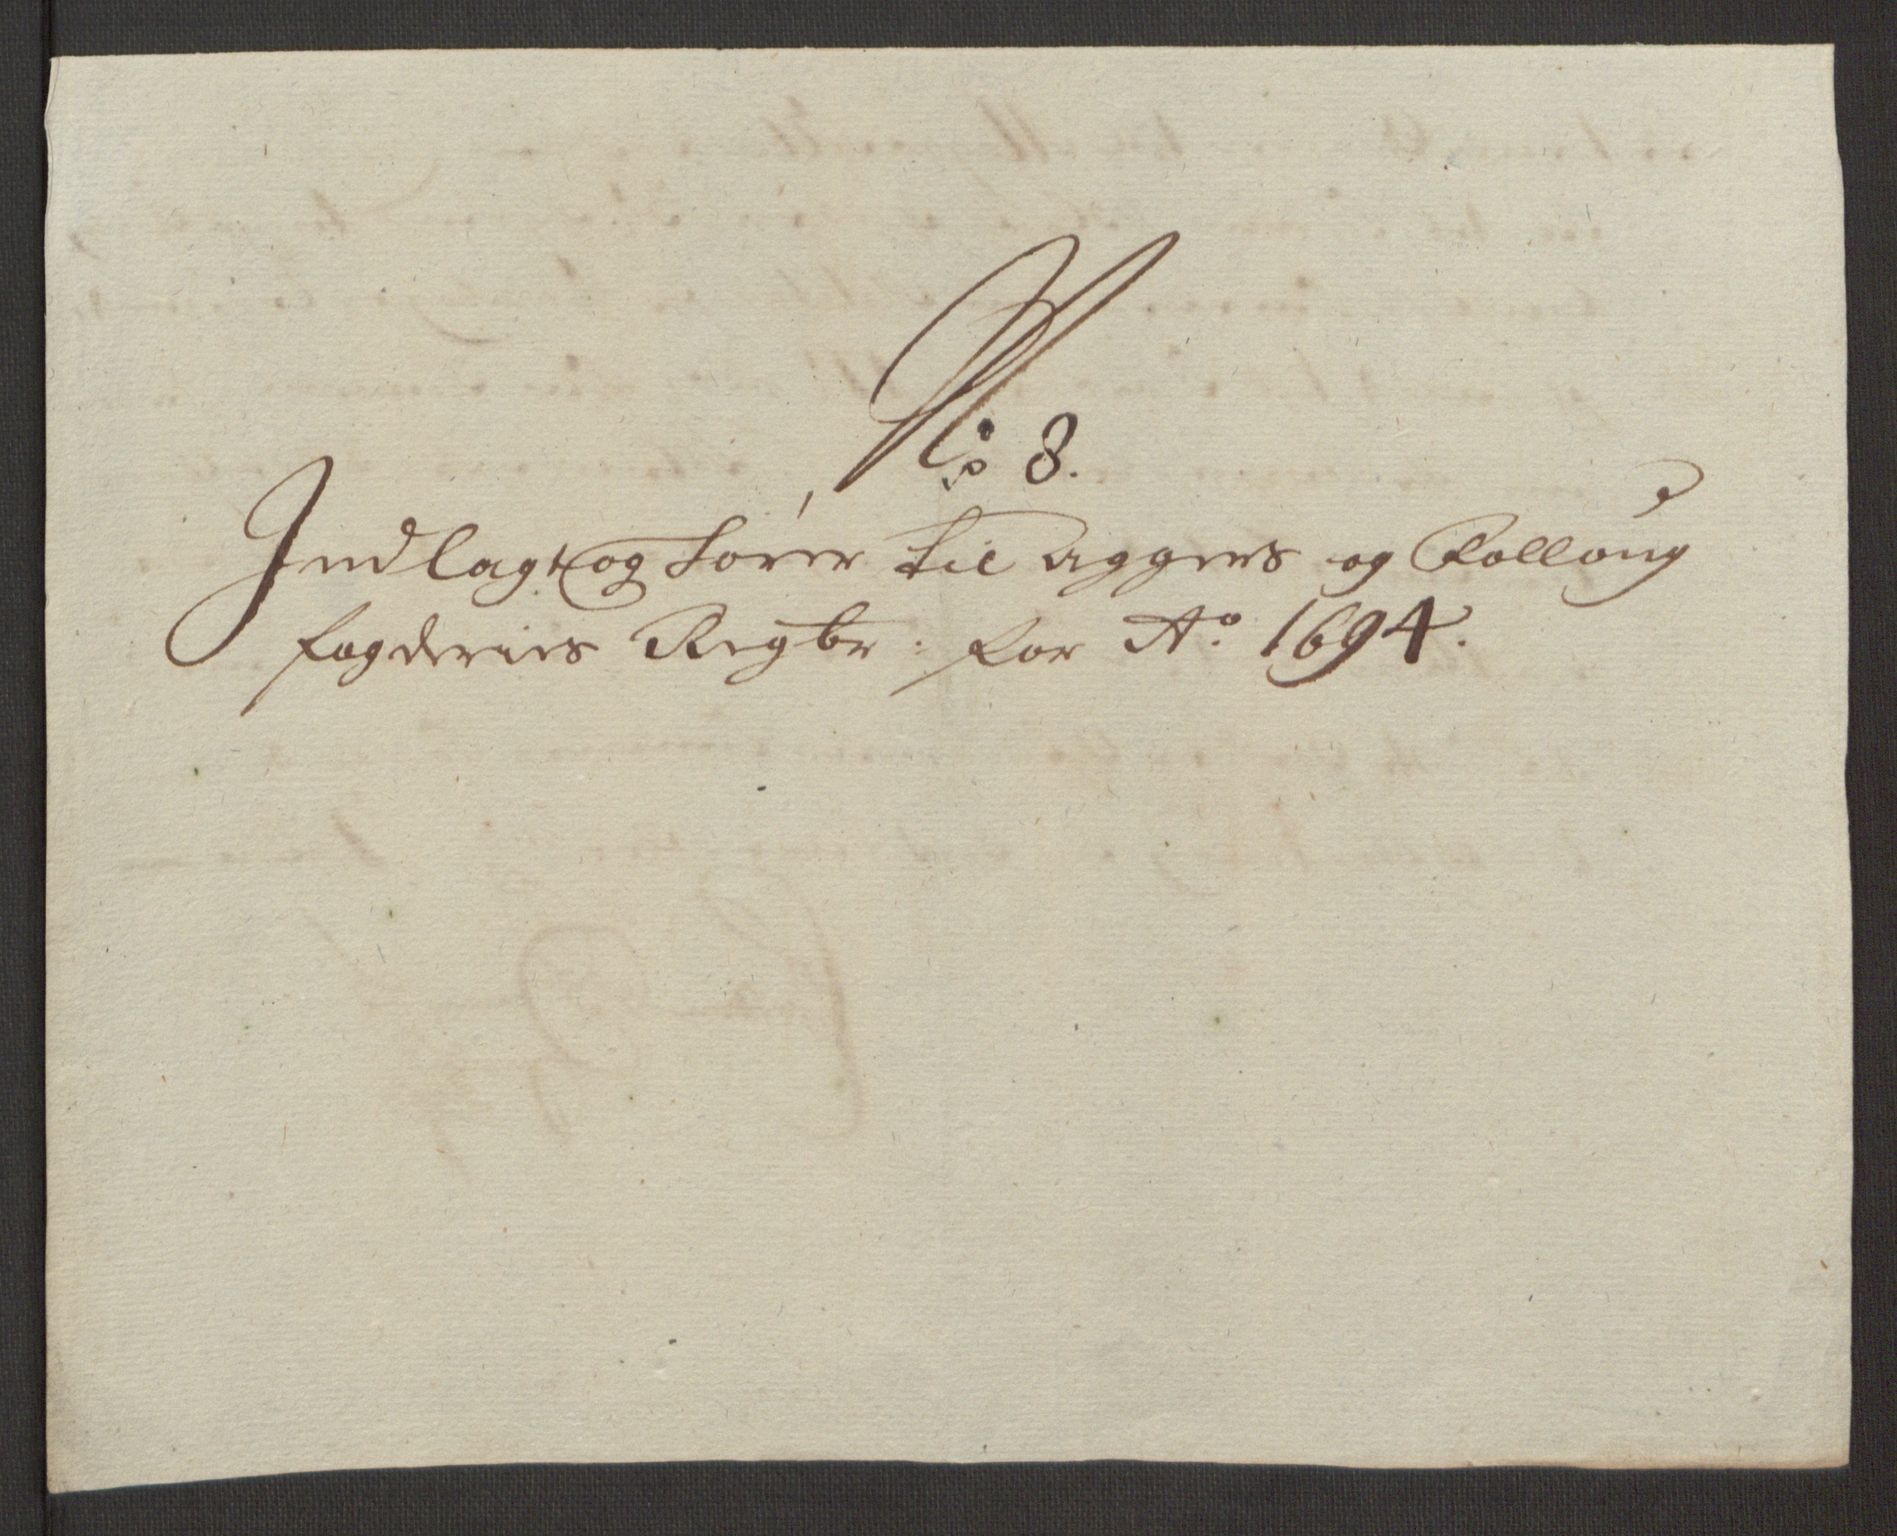 No 8.
Indlagt og hører til Aggers og Folloug
fogderies Regbr: for Ao. 1694.